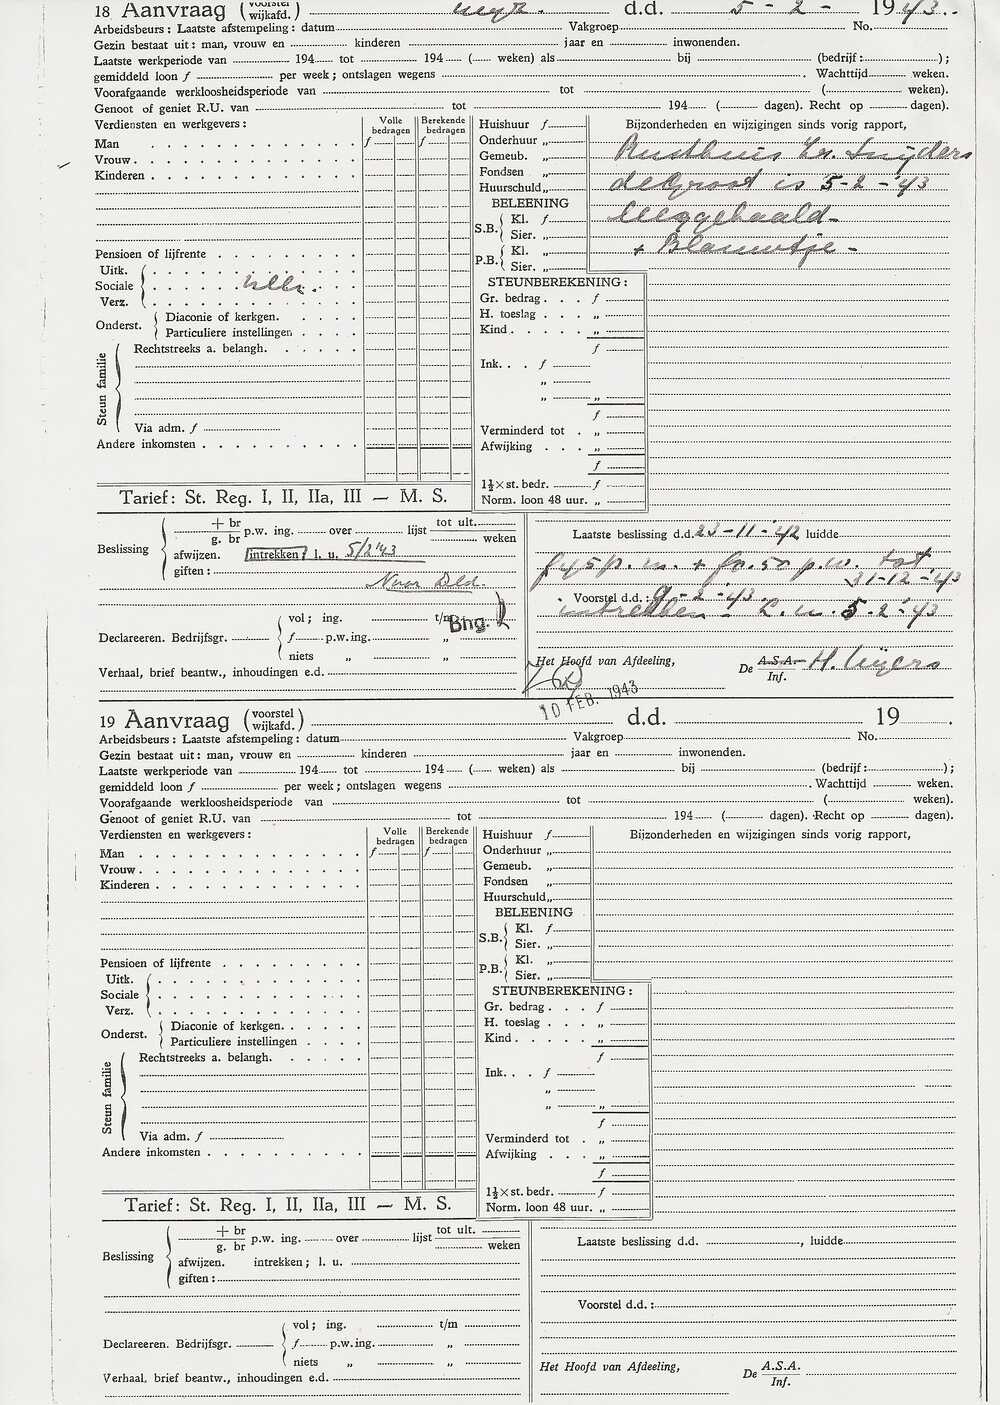 18 Aanvraag (voorstel wijkafd.) d.d. 5 - 2 - 1943.
Arbeidsbeurs : Laatste afstempeling : datum Vakgroep No.
Gezin bestaat uit : man, vrouw en kinderen jaar en inwonenden.
Laatste werkperiode van 194 tot 194 ( weken) als bij (bedrijf : ) ;
gemiddeld loon f per week ; ontslagen wegens . Wachttijd weken.
Voorafgaande werkloosheidsperiode van tot ( weken).
Genoot of geniet R.U. van tot 194 ( dagen). Recht op dagen).
Verdiensten en werkgevers : Volle bedragen Berekende bedragen
Man f f
Vrouw
Kinderen
Pensioen of lijfrente
Uitk.
Sociale
Verz.
Onderst. Diaconie of kerkgen.
Particuliere instellingen
Steun familie
Rechtstreeks a. belangh.
Via adm. f
Andere inkomsten
Huishuur f
Onderhuur „
Gemeub. „
Fondsen „
Huurschuld „
BELEENING
S.B. Kl. f
Sier. „
P.B. Kl. „
Sier. „
STEUNBEREKENING :
Gr. bedrag f
H. toeslag „
Kind „
f
Ink. f
„
„ „
f
Verminderd tot „
Afwijking „
f
1½ × st. bedr. f
Norm. loon 48 uur. „
Bijzonderheden en wijzigingen sinds vorig rapport,
Rusthuis Snijders
de Groot is 5-2-'43
weggehaald-
+ Blauwtje -
Tarief : St. Reg. I, II, IIa, III — M. S.
Beslissing + br g. br p.w. ing. over lijst tot ult. weken
afwijzen. intrekken ; l. u. 5/2 '43
giften :
Declareeren. Bedrijfsgr. vol ; ing. t/m
f p.w.ing. „
niets „ „
Bng.
Verhaal, brief beantw., inhoudingen e.d.
Laatste beslissing d.d. 23-11-'42 luidde
p.m. + p.w. tot
31-12-'43
Voorstel d.d. : 9-2-'43.
intrekken - l. u. 5-2-'43
Het Hoofd van Afdeeling,
De A.S.A. Inf.
10 FEB. 1943
19 Aanvraag (voorstel wijkafd.) d.d. 19 .
Arbeidsbeurs : Laatste afstempeling : datum Vakgroep No.
Gezin bestaat uit : man, vrouw en kinderen jaar en inwonenden.
Laatste werkperiode van 194 tot 194 ( weken) als bij (bedrijf : ) ;
gemiddeld loon f per week ; ontslagen wegens . Wachttijd weken.
Voorafgaande werkloosheidsperiode van tot ( weken).
Genoot of geniet R.U. van tot 194 ( dagen). Recht op dagen).
Verdiensten en werkgevers : Volle bedragen Berekende bedragen
Man f f
Vrouw
Kinderen
Pensioen of lijfrente
Uitk.
Sociale
Verz.
Onderst. Diaconie of kerkgen.
Particuliere instellingen
Steun familie
Rechtstreeks a. belangh.
Via adm. f
Andere inkomsten
Huishuur f
Onderhuur „
Gemeub. „
Fondsen „
Huurschuld „
BELEENING
S.B. Kl. f
Sier. „
P.B. Kl. „
Sier. „
STEUNBEREKENING :
Gr. bedrag f
H. toeslag „
Kind „
f
Ink. f
„
„ „
f
Verminderd tot „
Afwijking „
f
1½ × st. bedr. f
Norm. loon 48 uur. „
Bijzonderheden en wijzigingen sinds vorig rapport,
Tarief : St. Reg. I, II, IIa, III — M. S.
Beslissing + br g. br p.w. ing. over lijst tot ult. weken
afwijzen. intrekken ; l. u.
giften :
Declareeren. Bedrijfsgr. vol ; ing. t/m
f p.w.ing. „
niets „ „
Verhaal, brief beantw., inhoudingen e.d.
Laatste beslissing d.d. , luidde
Voorstel d.d. :
Het Hoofd van Afdeeling,
De A.S.A. Inf.